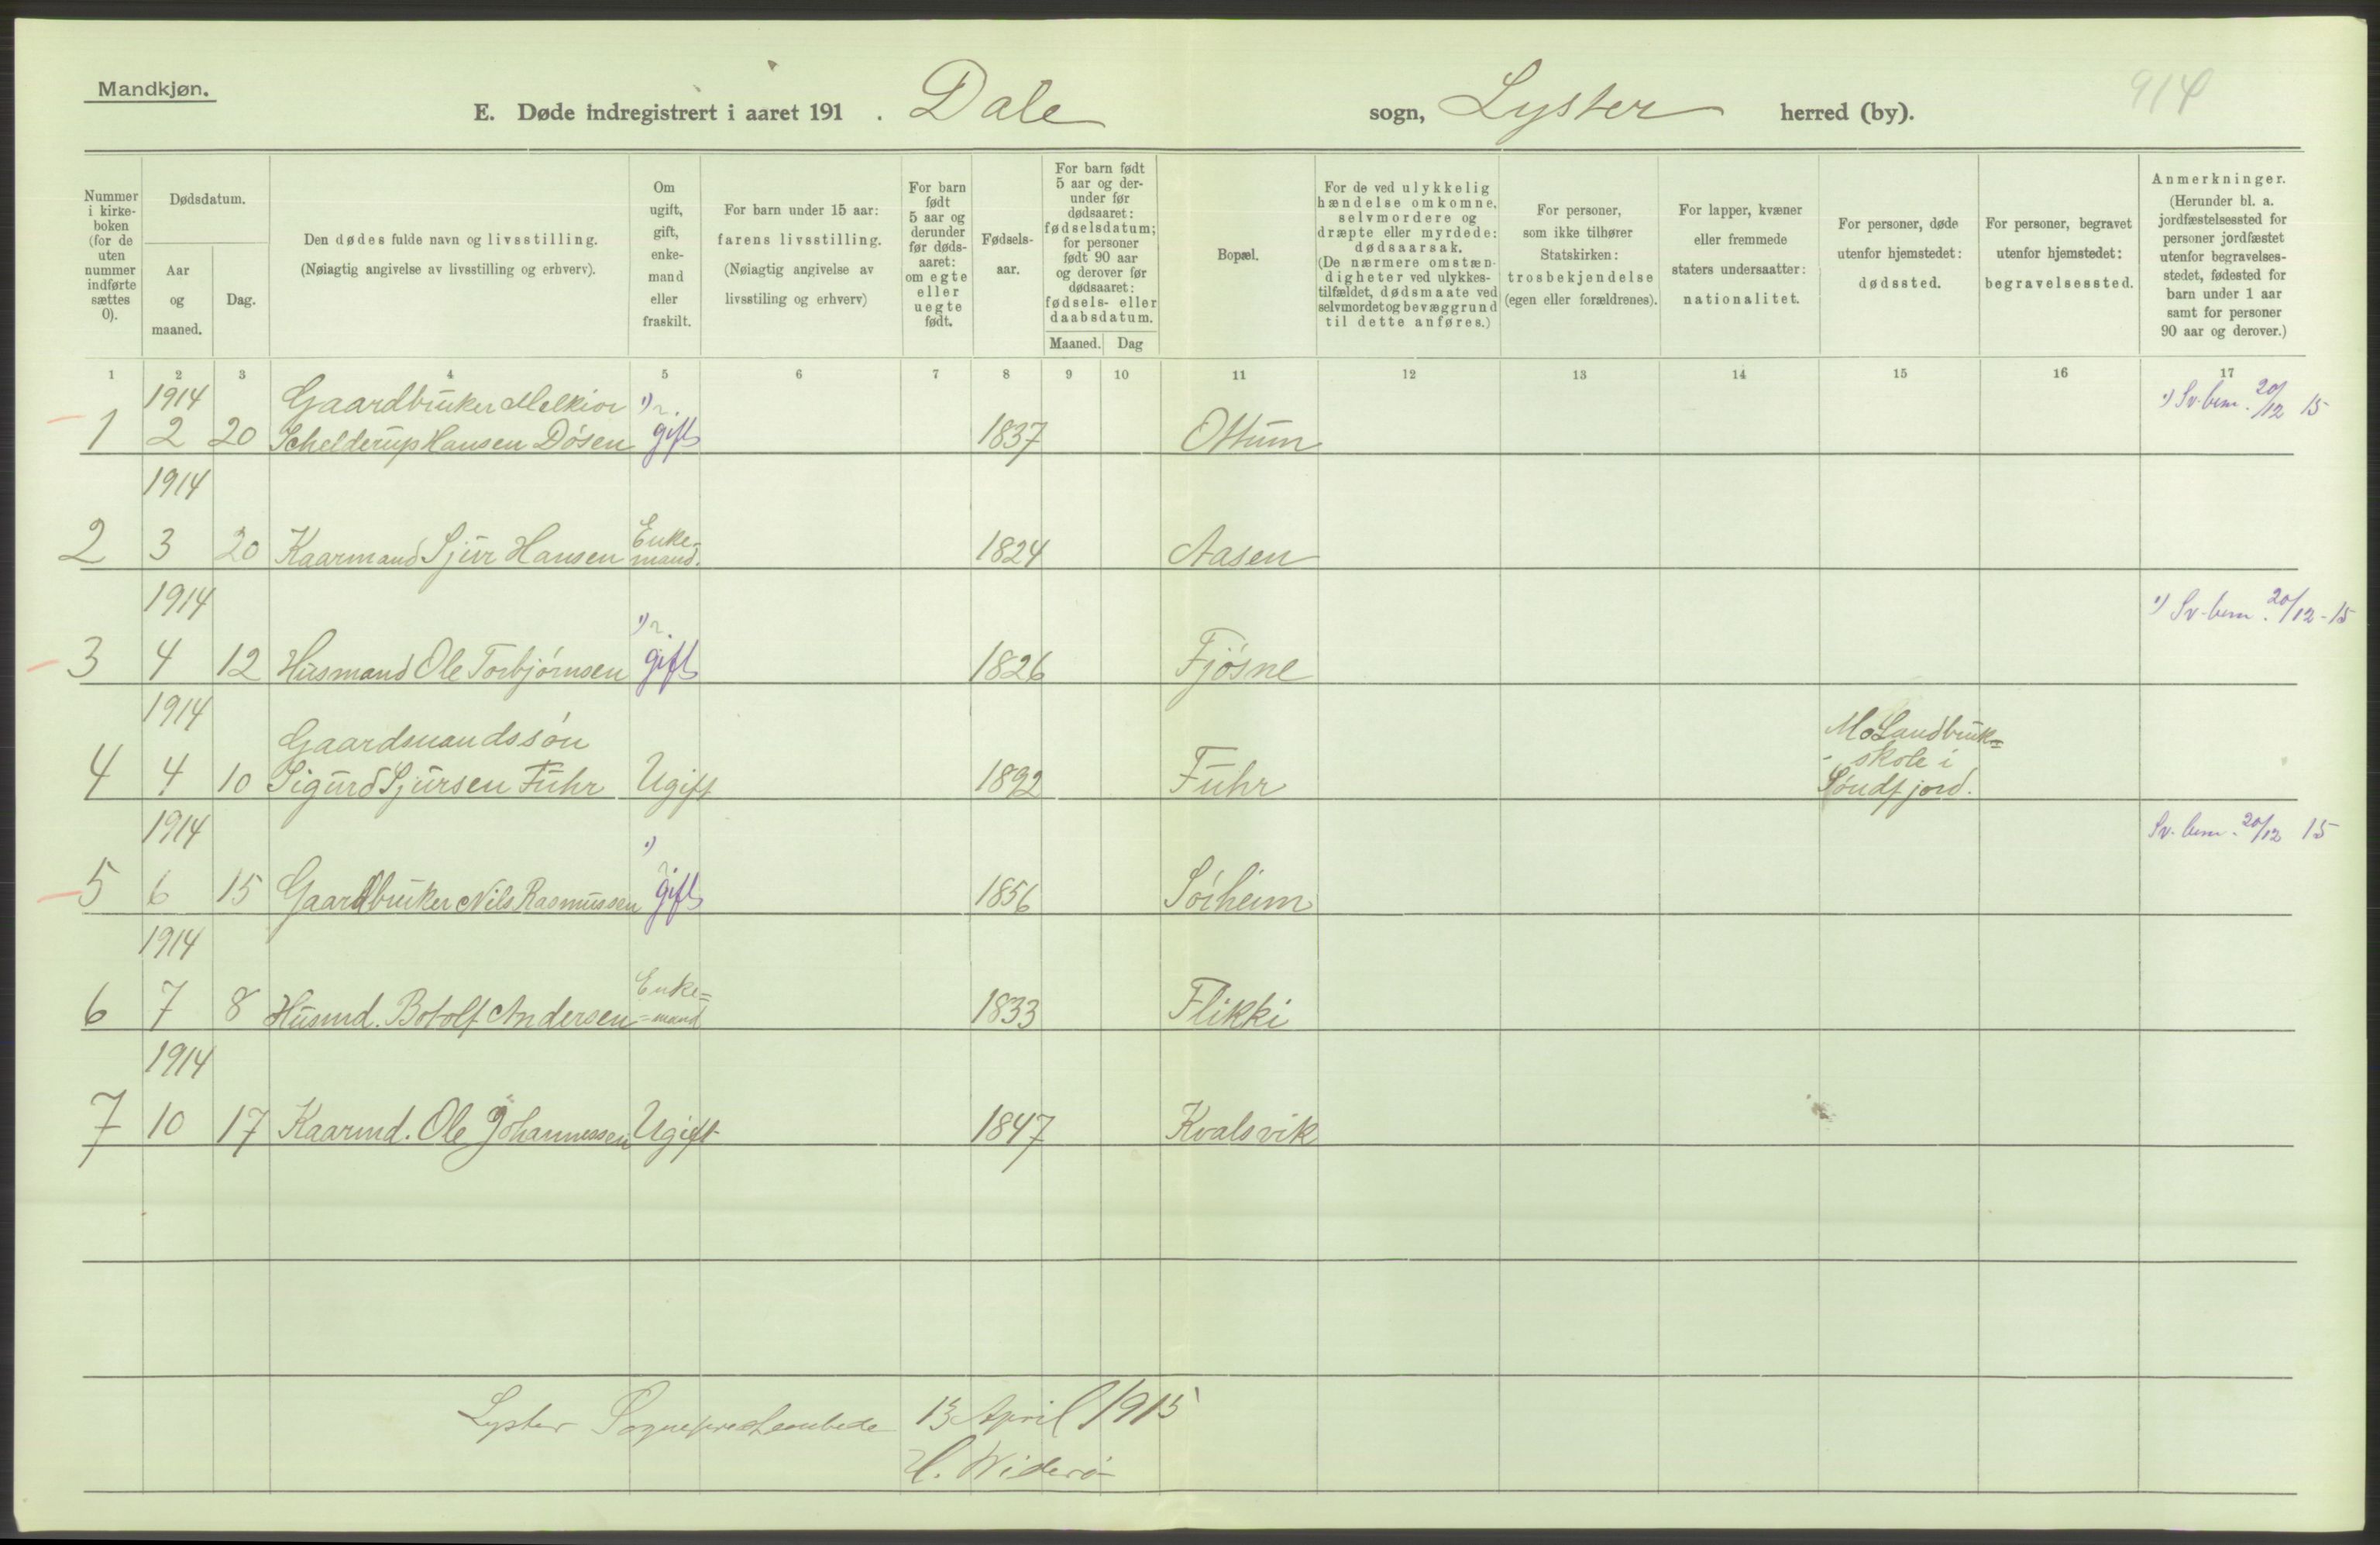 Mandkjøn.
E. Døde indregistrert i aaret 191 . Dale sogn, Lyster herred (by).
914
Nummer
i kirke-
boken
(for de
uten
nummer
indførte
sættes
0).
Dødsdatum.
Aar
og
maaned.
Dag.
Den dødes fulde navn og livsstilling.
(Nøiagtig angivelse av livsstilling og erhverv).
Om
ugift,
gift,
enke-
mand
eller
fraskilt.
For barn under 15 aar:
farens livsstilling.
(Nøiagtig angivelse av
livsstiling og erhverv)
For barn
født
5 aar og
derunder
før døds-
aaret:
om egte
eller
uegte
født.
Fødsels-
aar.
For barn født
5 aar og der-
under før
dødsaaret:
fødselsdatum;
for personer
født 90 aar
og derover før
dødsaaret:
fødsels- eller
daabsdatum.
Maaned. Dag
Bopæl.
For de ved ulykkelig
hændelse omkomne,
selvmordere og
dræpte eller myrdede:
dødsaarsak.
(De nærmere omstæn-
digheter ved ulykkes-
tilfældet, dødsmaate ved
selvmordet og bevæggrund
til dette anføres.)
For personer,
som ikke tilhører
Statskirken:
trosbekjendelse
(egen eller forældrenes).
For lapper, kvæner
eller fremmede
staters undersaatter:
nationalitet.
For personer, døde
utenfor hjemstedet:
dødssted.
For personer, begravet
utenfor hjemstedet:
begravelsessted.
Anmerkninger.
(Herunder bl. a.
jordfæstelsessted for
personer jordfæstet
utenfor begravelses-
stedet, fødested for
barn under 1 aar
samt for personer
90 aar og derover.)
1 2 3 4 5 6 7 8 9 10 11 12 13 14 15 16 17
1914 Gaardbruker Melkior 1) 1) Sv. bem. 20/12 15
1 2 20 Schelderup Hansen Døsen gift 1837 Ottum
1914
Enke-
2 3 20 Kaarmand Sjur Hansen mand. 1824 Aasen
1914 1) 1) Sv. bem. 20/12 - 15
3 4 12 Husmand Ole Torbjørnsen gift 1826 Fjøsne
1914 Gaardmandssøn Mo Landbruk=
skole i
4 4 10 Sigurd Sjursen Fuhr Ugift 1892 Fuhr Søndfjord.
1914 1) Sv. bem. 20/12 15
5 6 15 Gaardbruker Nils Rasmussen gift 1856 Sørheim
1914
Enke=
6 7 8 Husmd. Botolf Andersen =mand 1833 Flikki
1914
7 10 17 Kaarmd. Ole Johannessen Ugift 1847 Kvalsvik
Lyster Sogneprestembede 13 April 1915
H. Widerø